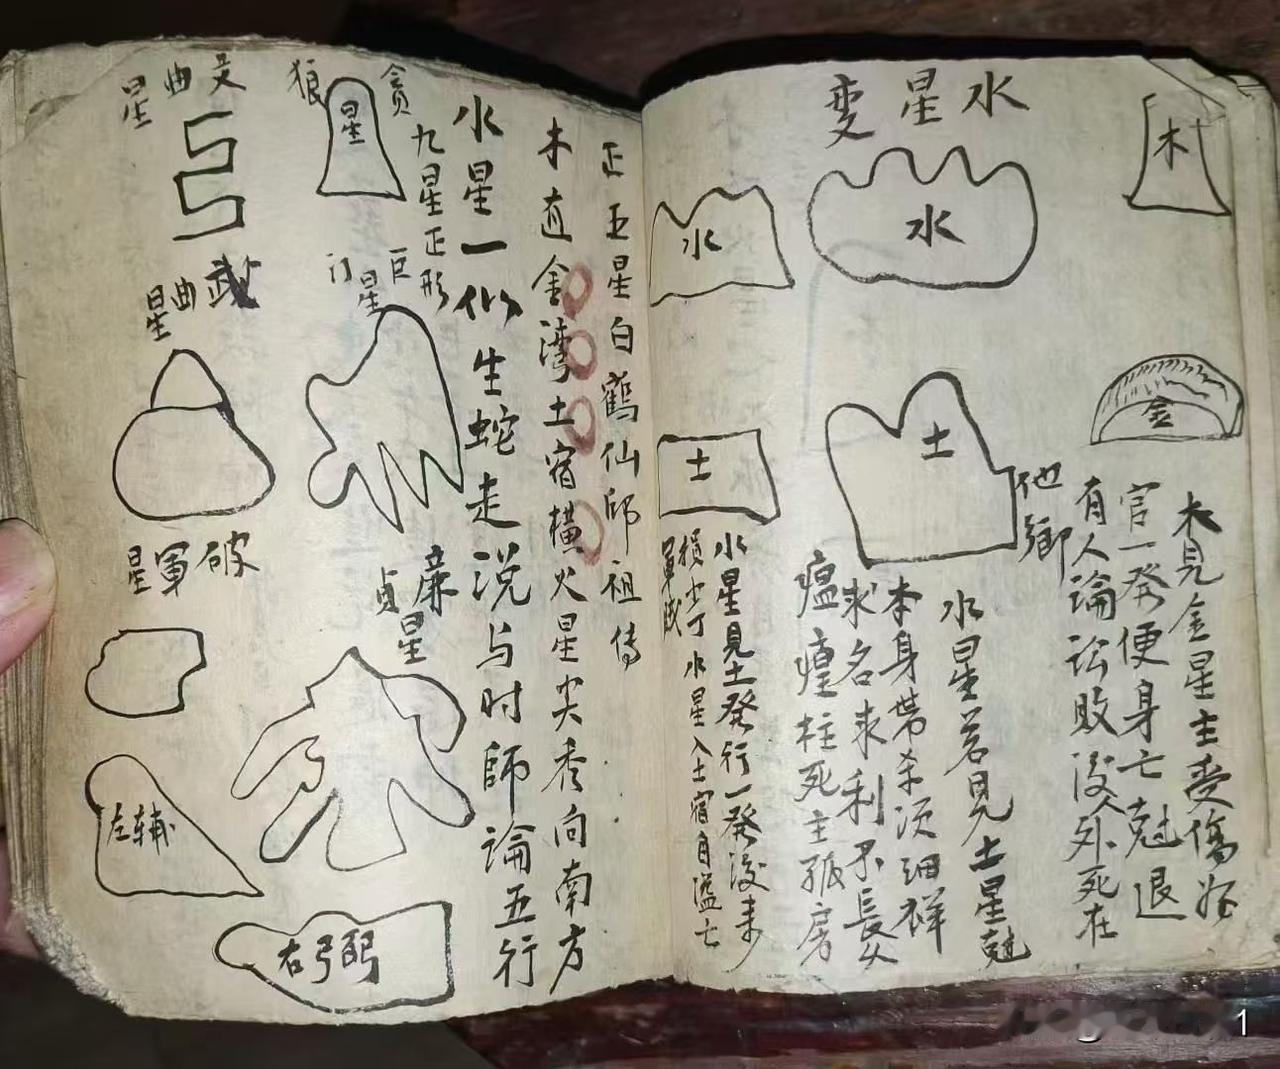 木
金
木見金星主受傷
官一發便身亡尅退
有人論訟敗沒人外死在
他鄉
水星变
水
土
水星若見土星尅
本身带杀须细祥
求名求利不長久
瘟㾮柱死主孤房
水
土
水星見土發行一發没来
損少丁水星入土宿自溢亡
軍賊
正五星白鶴仙邱祖傳
木直金湾土宿横火星尖秀向南方
水星一似生蛇走说与时師論五行
九星正形
貪狼星
巨门星
廉貞星
文曲星
武曲星
破軍星
左辅
右弼
1